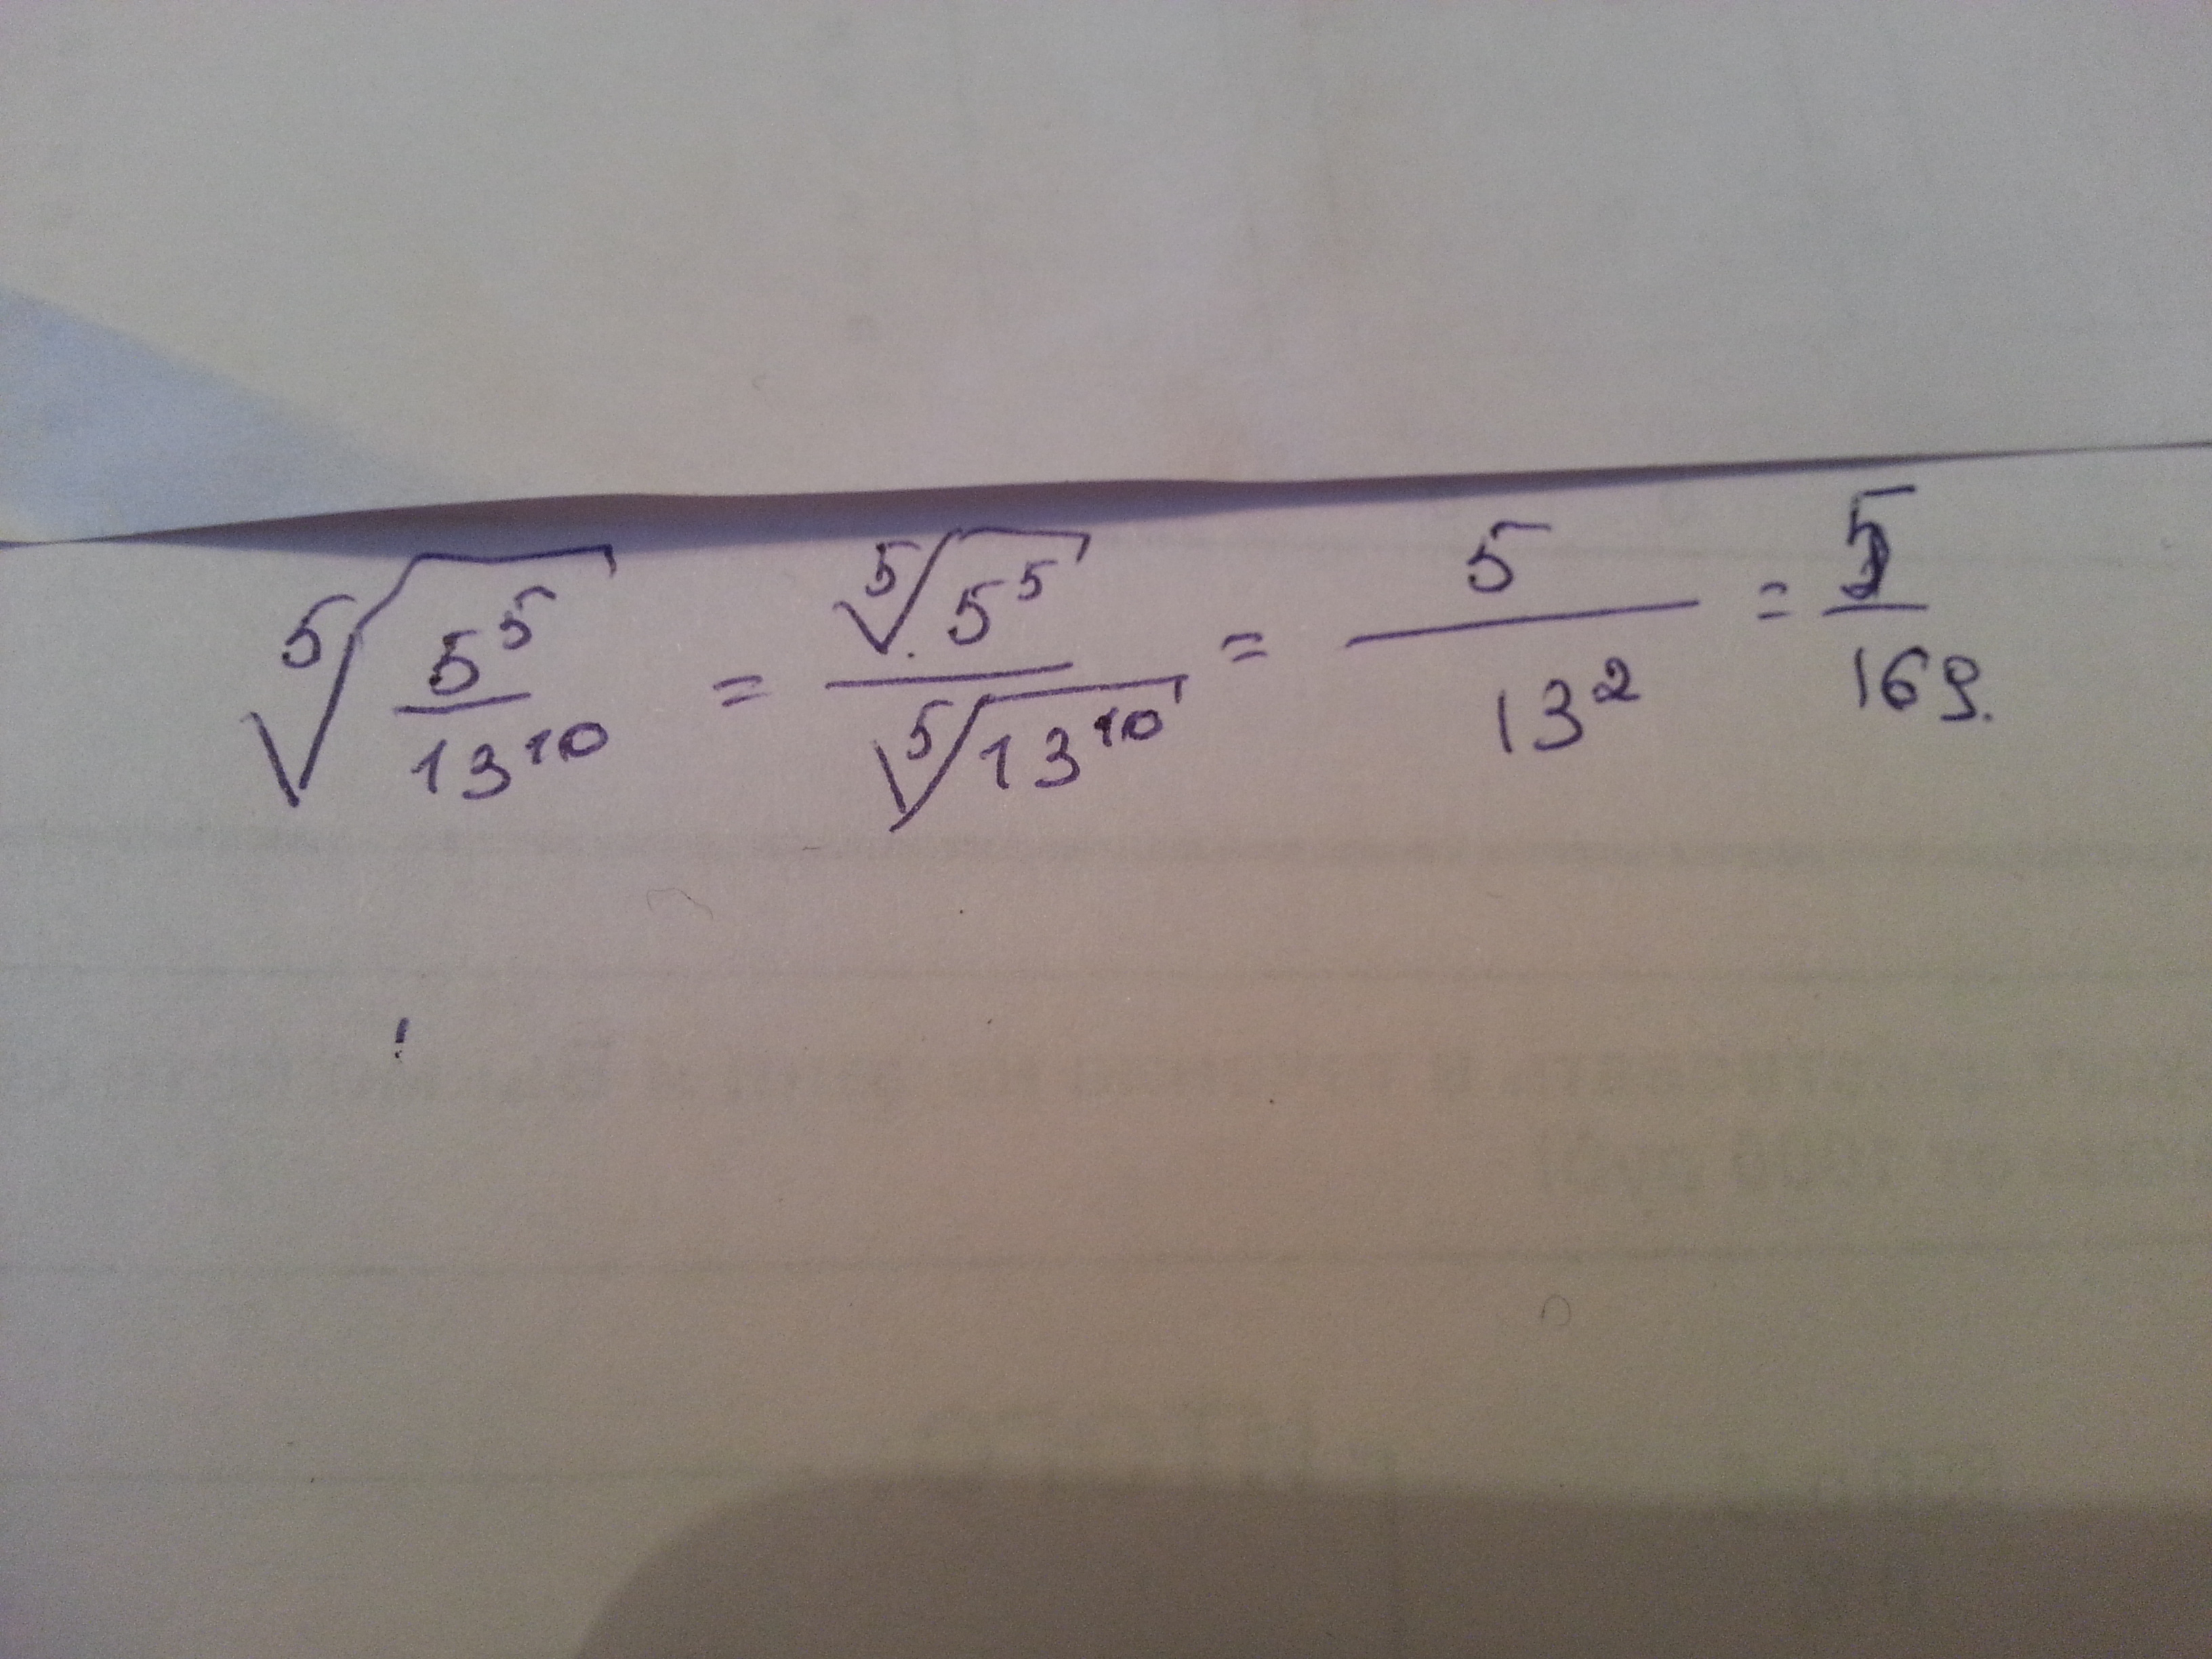 ⁵√(5⁵/13¹⁰) = ⁵√5⁵/⁵√13¹⁰ = 5/13² = 5/169.